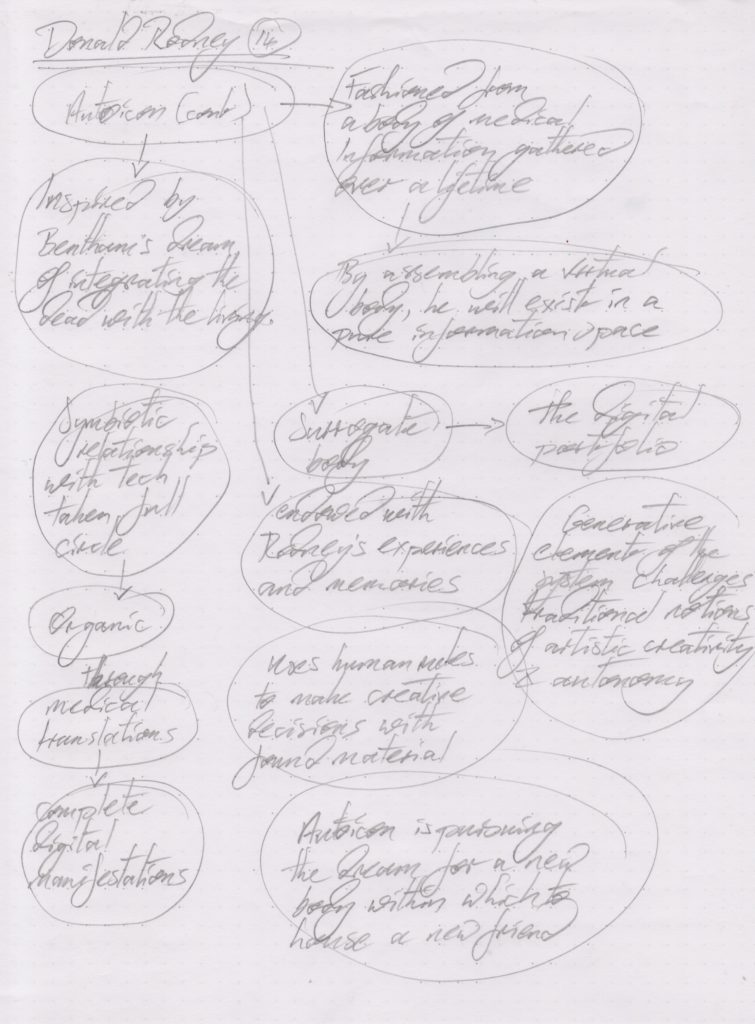 Donald Rodney 14
Autoicon (cont)
Fashioned from
a body of medical
information gathered
over a lifetime
Inspired by
Bentham's dream
of integrating the
dead with the living.
By assembling a virtual
body, he will exist in a
pure information space
Symbiotic
relationship
with tech
taken full
circle
Surrogate
body
the digital
portfolio
endowed with
Rodney's experiences
and memories
Generative
element of the
system challenges
traditional notions
of artistic creativity
& autonomy
Organic
through
medical
translations
Uses human rules
to make creative
decisions with
found material
complete
digital
manifestations
Autoicon is pursuing
the dream for a new
body within which to
house a new friend